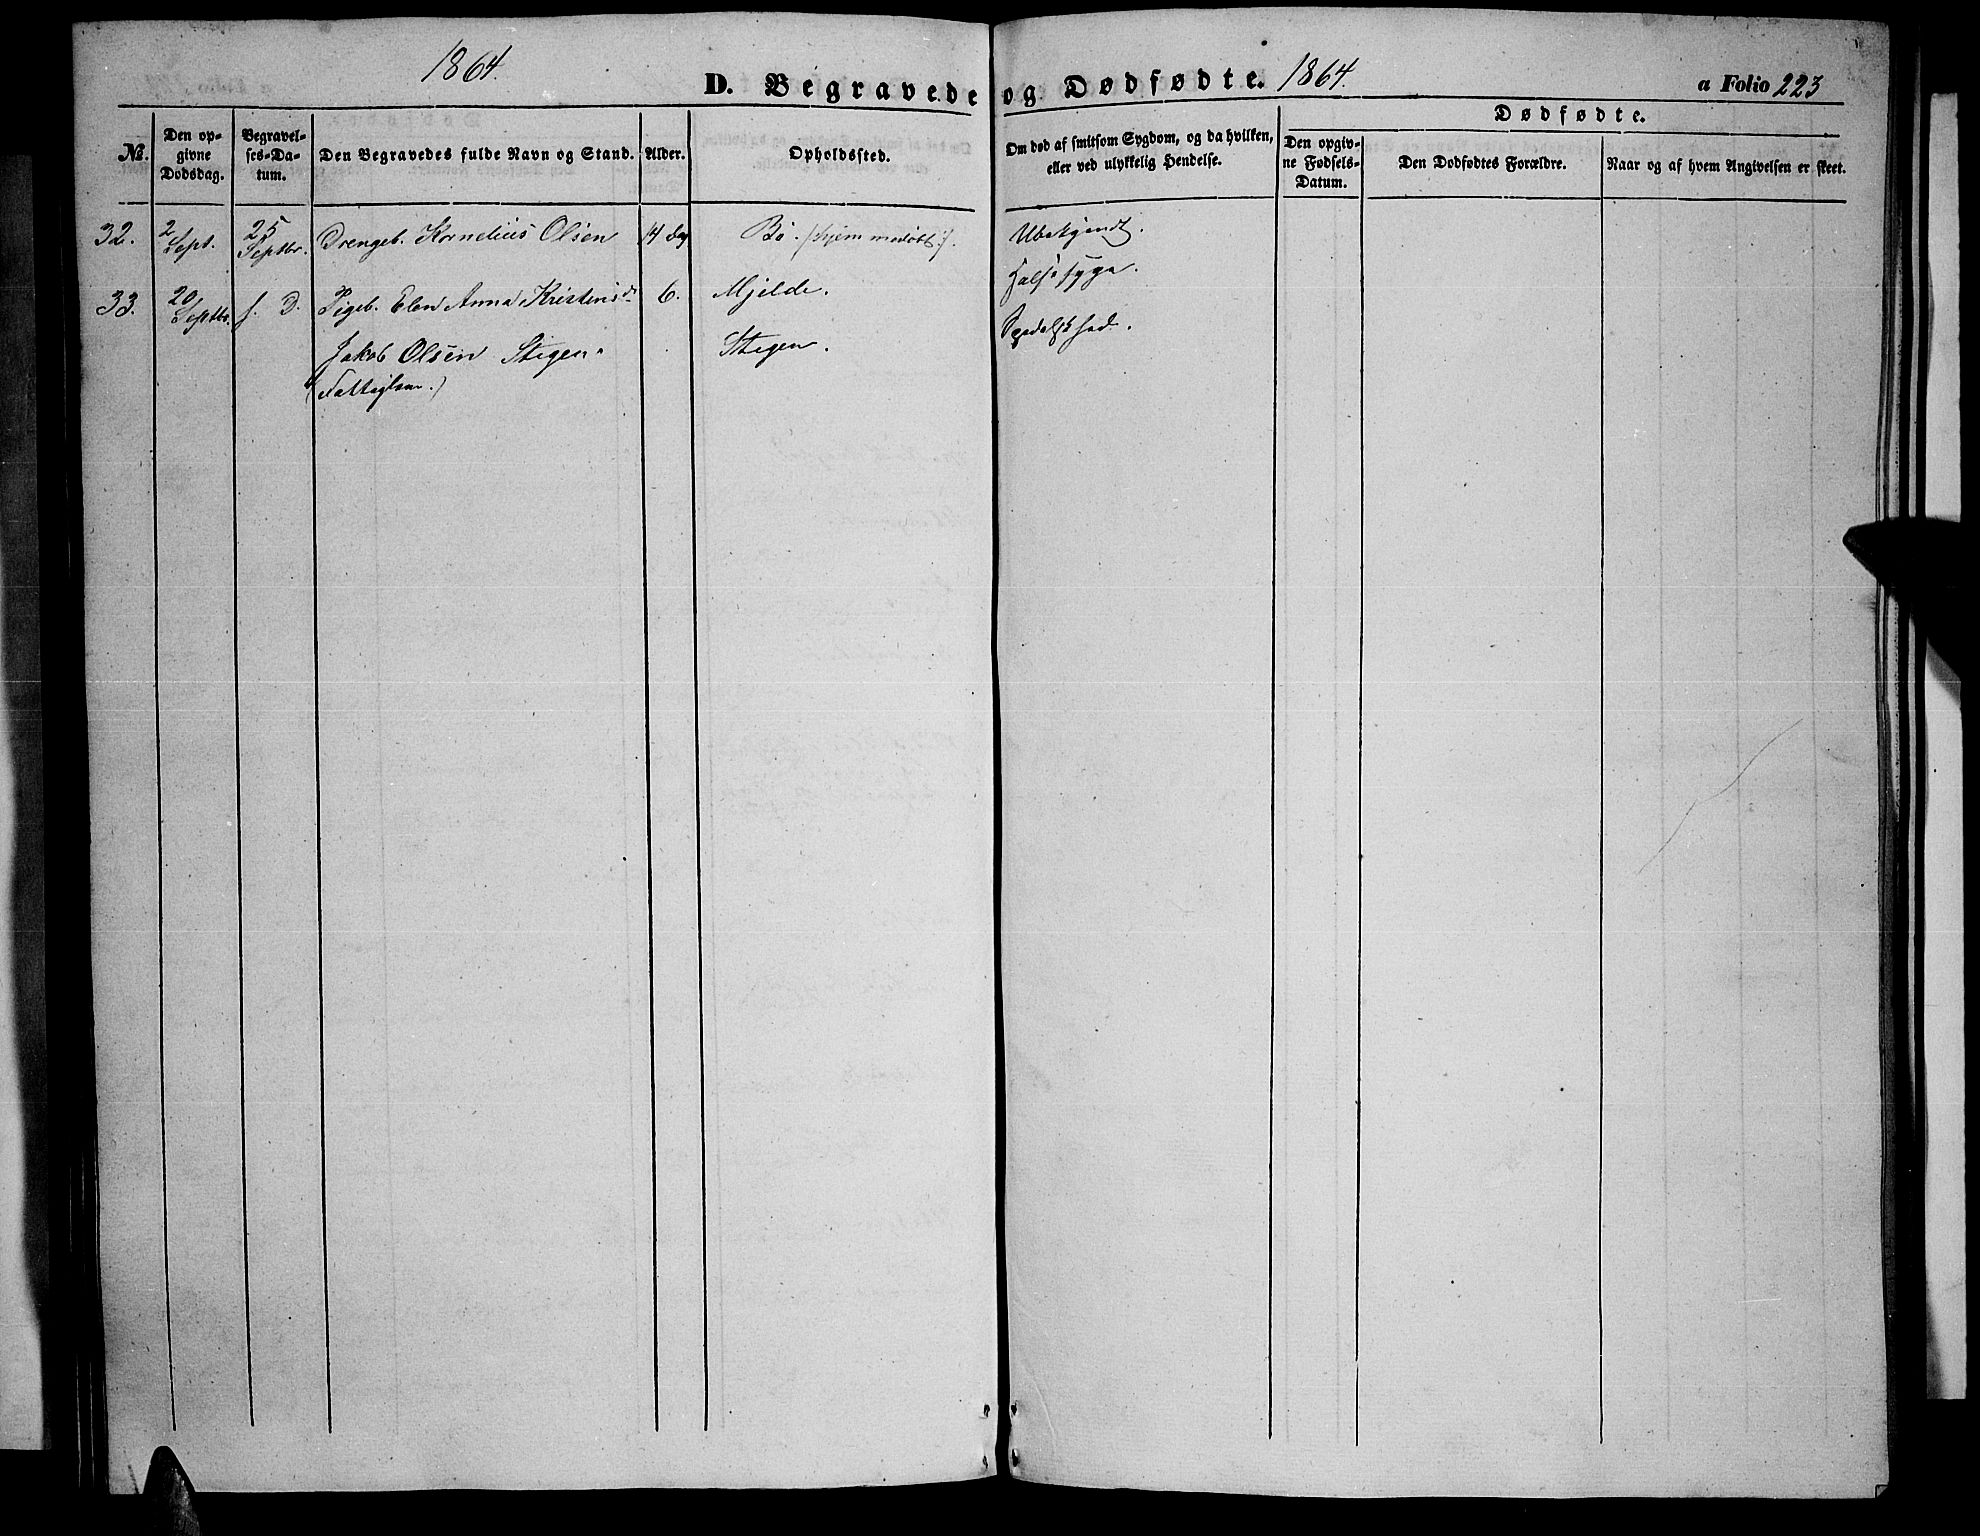 1864.
D. Begravede og Dødfødte. 1864. a Folio 223
No.
Den opgivne Dødsdag.
Begravelses-Datum.
Den Begravedes fulde Navn og Stand.
Alder.
Opholdssted.
Om død af smitsom Sygdom, og da hvilken, eller ved ulykkelig Hendelse.
Dødfødte.
Den opgivne Fødsels-Datum.
Den Dødfødtes Forældre.
Naar og af hvem Angivelsen er skeet.
32. 2 Sept. 25 Septbr. Drengeb. Kornelius Olsen 14 dag Bø. (hjemmedøbt). Ubekjendt.
33. 20 Septbr. s. D. Pigeb. Elen Anna Kristensd. 6. Mjelde. Halssyge.
Jakob Olsen Stigen. Stegen. Spedalskhed.
(Fattiglem.)